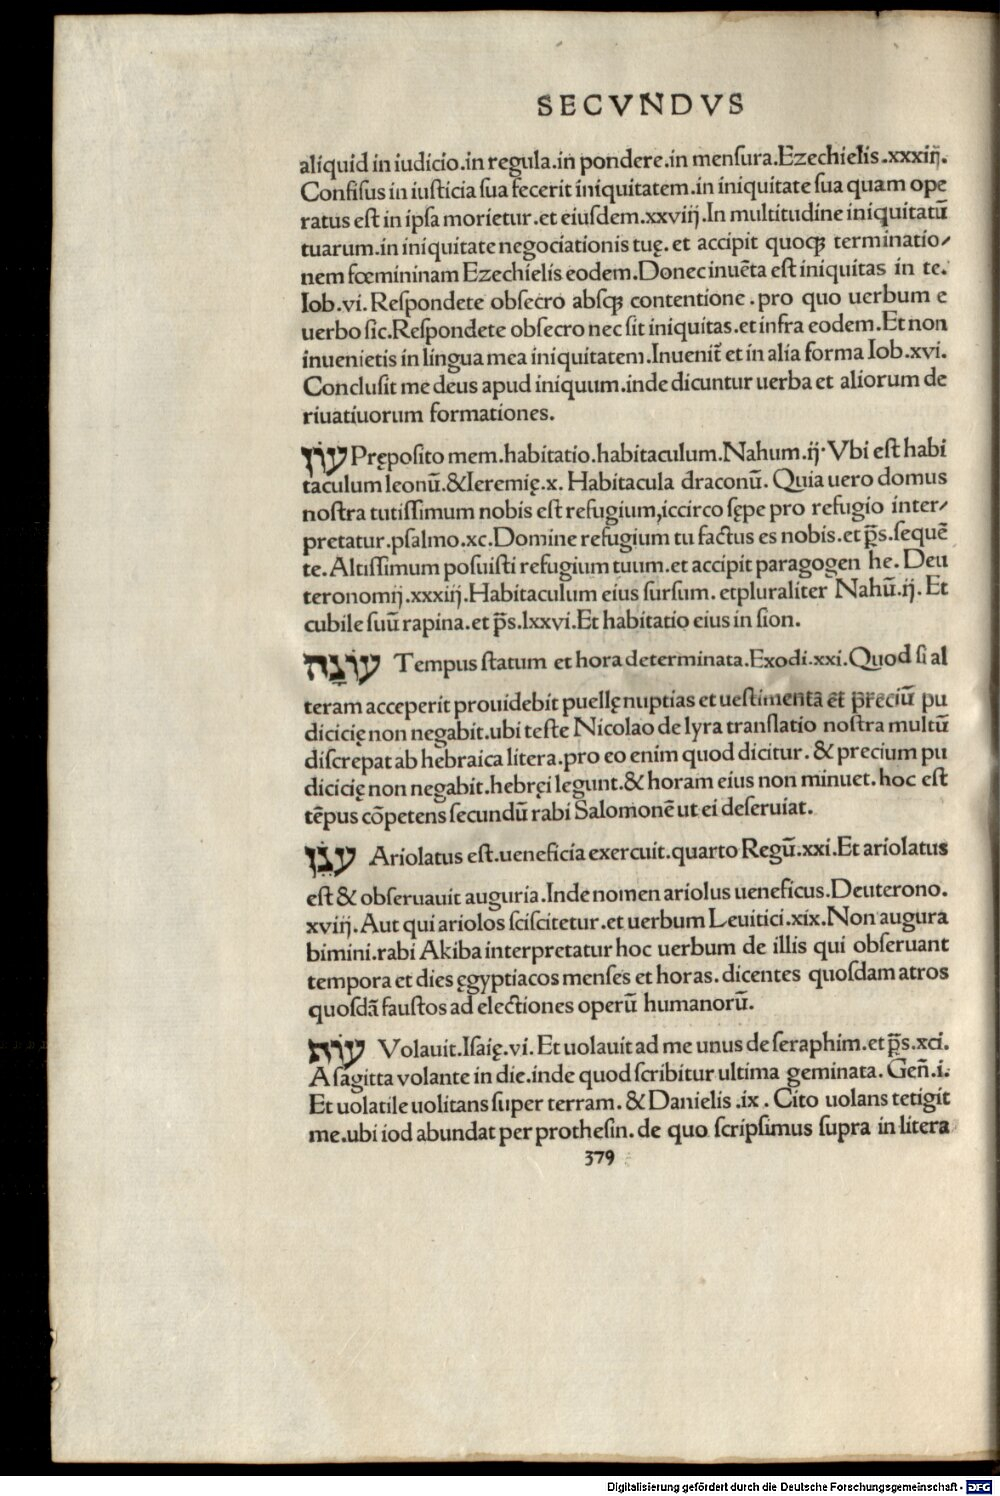 SECVNDVS
aliquid in iudicio.in regula.in pondere.in menſura.Ezechielis.xxxiij̄.
Confiſus in iuſticia ſua fecerit iniquitatem.in iniquitate ſua quam ope
ratus eſt in ipſa morietur.et eiuſdem.xxviij.In multitudine iniquitatū
tuarum.in iniquitate negociationis tuę. et accipit quoqꝫ terminatio/
nem fœmininam Ezechielis eodem.Donec inuēta eſt iniquitas in te.
Iob.vi. Reſpondete obſecro abſqꝫ contentione .pro quo uerbum e
uerbo ſic.Reſpondete obſecro nec ſit iniquitas.et infra eodem.Et non
inuenietis in lingua mea iniquitatem.Inuenit̄ et in alia forma Iob.xvi.
Concluſit me deus apud iniquum.inde dicuntur uerba et aliorum de
riuatiuorum formationes.
עוֹן Prępoſito mem.habitatio.habitaculum.Nahum.ij̄.Vbi eſt habi
taculum leonū.&Ieremię.x. Habitacula draconū. Quia uero domus
noſtra tutiſſimum nobis eſt refugium,iccirco ſępe pro refugio inter/
pretatur.pſalmo.xc.Domine refugium tu factus es nobis.et p̄s.ſequē
te.Altiſſimum poſuiſti refugium tuum.et accipit paragogen he. Deu
teronomij.xxxiij.Habitaculum eius ſurſum. etpluraliter Nahū.ij. Et
cubile ſuū rapina.et p̄s.lxxvi.Et habitatio eius in ſion.
עוֹנָה Tempus ſtatum et hora determinata.Exodi.xxi.Quod ſi al
teram acceperit prouidebit puellę nuptias et ueſtimenta et preciū pu
dicicię non negabit.ubi teſte Nicolao de lyra tranſlatio noſtra multū
diſcrepat ab hebraica litera.pro eo enim quod dicitur. & precium pu
dicicię non negabit.hebręi legunt.& horam eius non minuet. hoc eſt
tēpus cōpetens ſecundū rabi Salomonē ut ei deſeruiat.
עֹנֵן Ariolatus eſt.ueneficia exercuit.quarto Regū.xxi.Et ariolatus
eſt & obſeruauit auguria.Inde nomen ariolus ueneficus.Deuterono.
xviij.Aut qui ariolos ſciſcitetur.et uerbum Leuitici.xix.Non augura
bimini.rabi Akiba interpretatur hoc uerbum de illis qui obſeruant
tempora et dies ęgyptiacos menſes et horas. dicentes quoſdam atros
quoſdā fauſtos ad electiones operū humanorū.
עוֹת Volauit.Iſaię.vi. Et uolauit ad me unus de ſeraphim.et p̄s.xci.
A ſagitta volante in die.inde quod ſcribitur ultima geminata. Geñ.i.
Et uolatile uolitans ſuper terram. & Danielis .ix. Cito uolans tetigit
me.ubi iod abundat per protheſin. de quo ſcripſimus ſupra in litera
379
Digitalisierung gefördert durch die Deutsche Forschungsgemeinschaft - DFG